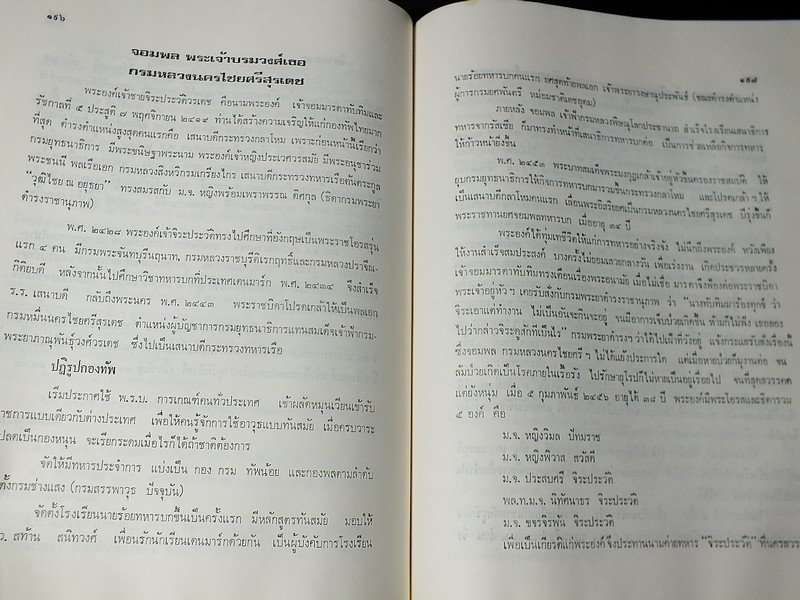 ๑๙๖
จอมพล พระเจ้าบรมวงศ์เธอ
กรมหลวงนครไชยศรีสุรเดช
พระองค์เจ้าชายจิระประวัติวรเดช คือนามพระองค์ เจ้าจอมมารดาทับทิมและ
รัชกาลที่ ๕ ประสูติ ๗ พฤศจิกายน ๒๔๑๙ ท่านได้สร้างความเจริญให้แก่กองทัพไทยมาก
ที่สุด ดำรงตำแหน่งสูงสุดคนแรกคือ เสนาบดีกระทรวงกลาโหม เพราะก่อนหน้านี้เรียกว่า
กรมยุทธนาธิการ มีพระชนิษฐาพระนาม พระองค์เจ้าหญิงประเวศวรสมัย มีพระอนุชาร่วม
พระชนนี พลเรือเอก กรมหลวงสิงหวิกรมเกรียงไกร เสนาบดีกระทรวงทหารเรือต้นตระกูล
"วุฒิไชย ณ อยุธยา" ทรงสมรสกับ ม.จ. หญิงพร้อมเพราพรรณ ดิศกุล (ธิดากรมพระยา
ดำรงราชานุภาพ)
พ.ศ. ๒๔๒๘ พระองค์เจ้าจิระประวัติทรงไปศึกษาที่อังกฤษเป็นพระราชโอรสรุ่น
แรก ๔ คน มีกรมพระจันทบุรีนฤนาท, กรมหลวงราชบุรีดิเรกฤทธิ์และกรมหลวงปราจีณ-
กิติยบดี หลังจากนั้นไปศึกษาวิชาทหารบกที่ประเทศเดนมาร์ก พ.ศ. ๒๔๓๔ จึงสำเร็จ
ร.ร. เสนาบดี กลับถึงพระนคร พ.ศ. ๒๔๔๓ พระราชบิดาโปรดเกล้าให้เป็นพลเอก
กรมหมื่นนครไชยศรีสุรเดช ตำแหน่งผู้บัญชาการกรมยุทธนาธิการแทนสมเด็จเจ้าฟ้ากรม-
พระยาภาณุพันธุ์วงศ์วรเดช ซึ่งไปเป็นเสนาบดีกระทรวงทหารเรือ
ปฏิรูปกองทัพ
เริ่มประกาศใช้ พ.ร.บ. การเกณฑ์คนทั่วประเทศ เข้าผลัดหมุนเวียนเข้ารับ
ราชการแบบเดียวกับต่างประเทศ เพื่อให้คนรู้จักการใช้อาวุธแบบทันสมัย เมื่อครบวาระ
ปลดเป็นกองหนุน จะเรียกระดมเมื่อไรก็ได้ถ้าชาติต้องการ
จัดให้มีทหารประจำการ แบ่งเป็น กอง กรม ทัพน้อย และกองพลตามลำดับ
ตั้งกรมช่างแสง (กรมสรรพาวุธ ปัจจุบัน)
จัดตั้งโรงเรียนนายร้อยทหารบกขึ้นเป็นครั้งแรก มีหลักสูตรทันสมัย มอบให้
ว. สท้าน สนิทวงศ์ เพื่อนรักนักเรียนเดนมาร์กด้วยกัน เป็นผู้บังคับการโรงเรียน
๑๙๗
นายร้อยทหารบกคนแรก ยศสุดท้ายพลเอก เจ้าพระยาวงษานุประพันธ์ (ขณะดำรงตำแหน่ง
ผู้การกรมยศพันตรี หม่อมชาติเดชอุดม)
ภายหลัง จอมพล เจ้าฟ้ากรมหลวงพิษณุโลกประชานาถ สำเร็จโรงเรียนเสนาธิการ
ทหารจากรัสเซีย ก็มาทรงทำหน้าที่เสนาธิการทหารบกต่อ เป็นการช่วยเหลือกิจการทหาร
ให้ก้าวหน้ายิ่งขึ้น
พ.ศ. ๒๔๕๓ พระบาทสมเด็จพระมงกุฎเกล้าเจ้าอยู่หัวขึ้นครองราชสมบัติ ให้
ยุบกรมยุทธนาธิการให้กิจการทหารบกมารวมขึ้นกระทรวงกลาโหม และโปรดเกล้าฯ ให้
เป็นเสนาบดีกลาโหมคนแรก เลื่อนพระอิสริยยศเป็นกรมหลวงนครไชยศรีสุรเดช ปีรุ่งขึ้นก็
พระราชทานยศจอมพลทหารบก เมื่ออายุ ๓๕ ปี
พระองค์ได้ทุ่มเทชีวิตให้แก่การทหารอย่างจริงจัง ไม่นึกถึงพระองค์ หวังเพียง
ให้งานสำเร็จสมประสงค์ บางครั้งไม่ยอมเสวยกลางวัน เพื่อเร่งงาน เกิดประชวรหลายครั้ง
เจ้าจอมมารดาทับทิมทรงเตือนเรื่องพระอนามัย เมื่อไม่เชื่อ มารดาจึงฟ้องต่อพระราชบิดา
พระเจ้าอยู่หัวฯ เคยรับสั่งกับกรมพระยาดำรงราชานุภาพ ว่า "นางทับทิมมาร้องทุกข์ ว่า
จิระเอาแต่ทำงาน ไม่เป็นอันจะกินจะอยู่ จนมีอาการเจ็บป่วยเกิดขึ้น ห้ามก็ไม่ฟัง เธอลอง
ไปว่ากล่าวจิระดูสักทีเป็นไร" กรมพระยาดำรงฯ ว่าได้ไปเฝ้าที่วังอยู่ แจ้งกระแสรับสั่งเรื่องนี้
ซึ่งจอมพล กรมหลวงนครไชยศรีฯ ไม่ได้แย้งประการใด แต่เมื่อหายป่วยก็มุงานต่อ จน
ล้มป่วยเกิดเป็นโรคภายในเรื้อรัง ไปรักษายุโรปก็ไม่หายเป็นอยู่เรื่อยไป จนที่สุดสวรรคต
แต่ยังหนุ่ม เมื่อ ๕ กุมภาพันธ์ ๒๔๕๖ อายุได้ ๓๘ ปี พระองค์มีพระโอรสและธิดารวม
๕ องค์ คือ
ม.จ. หญิงวิมล ปัทมราช
ม.จ. หญิงพิวาส สวัสดี
ม.จ. ประสบศรี จิระประวัติ
พล.ท.ม.จ. นิทัศนาธร จิระประวัติ
ม.จ. ขจรจิรพันธ์ จิระประวัติ
เพื่อเป็นเกียรติแก่พระองค์ จึงประทานนามค่ายทหาร "จิระประวัติ" ที่นครสวร